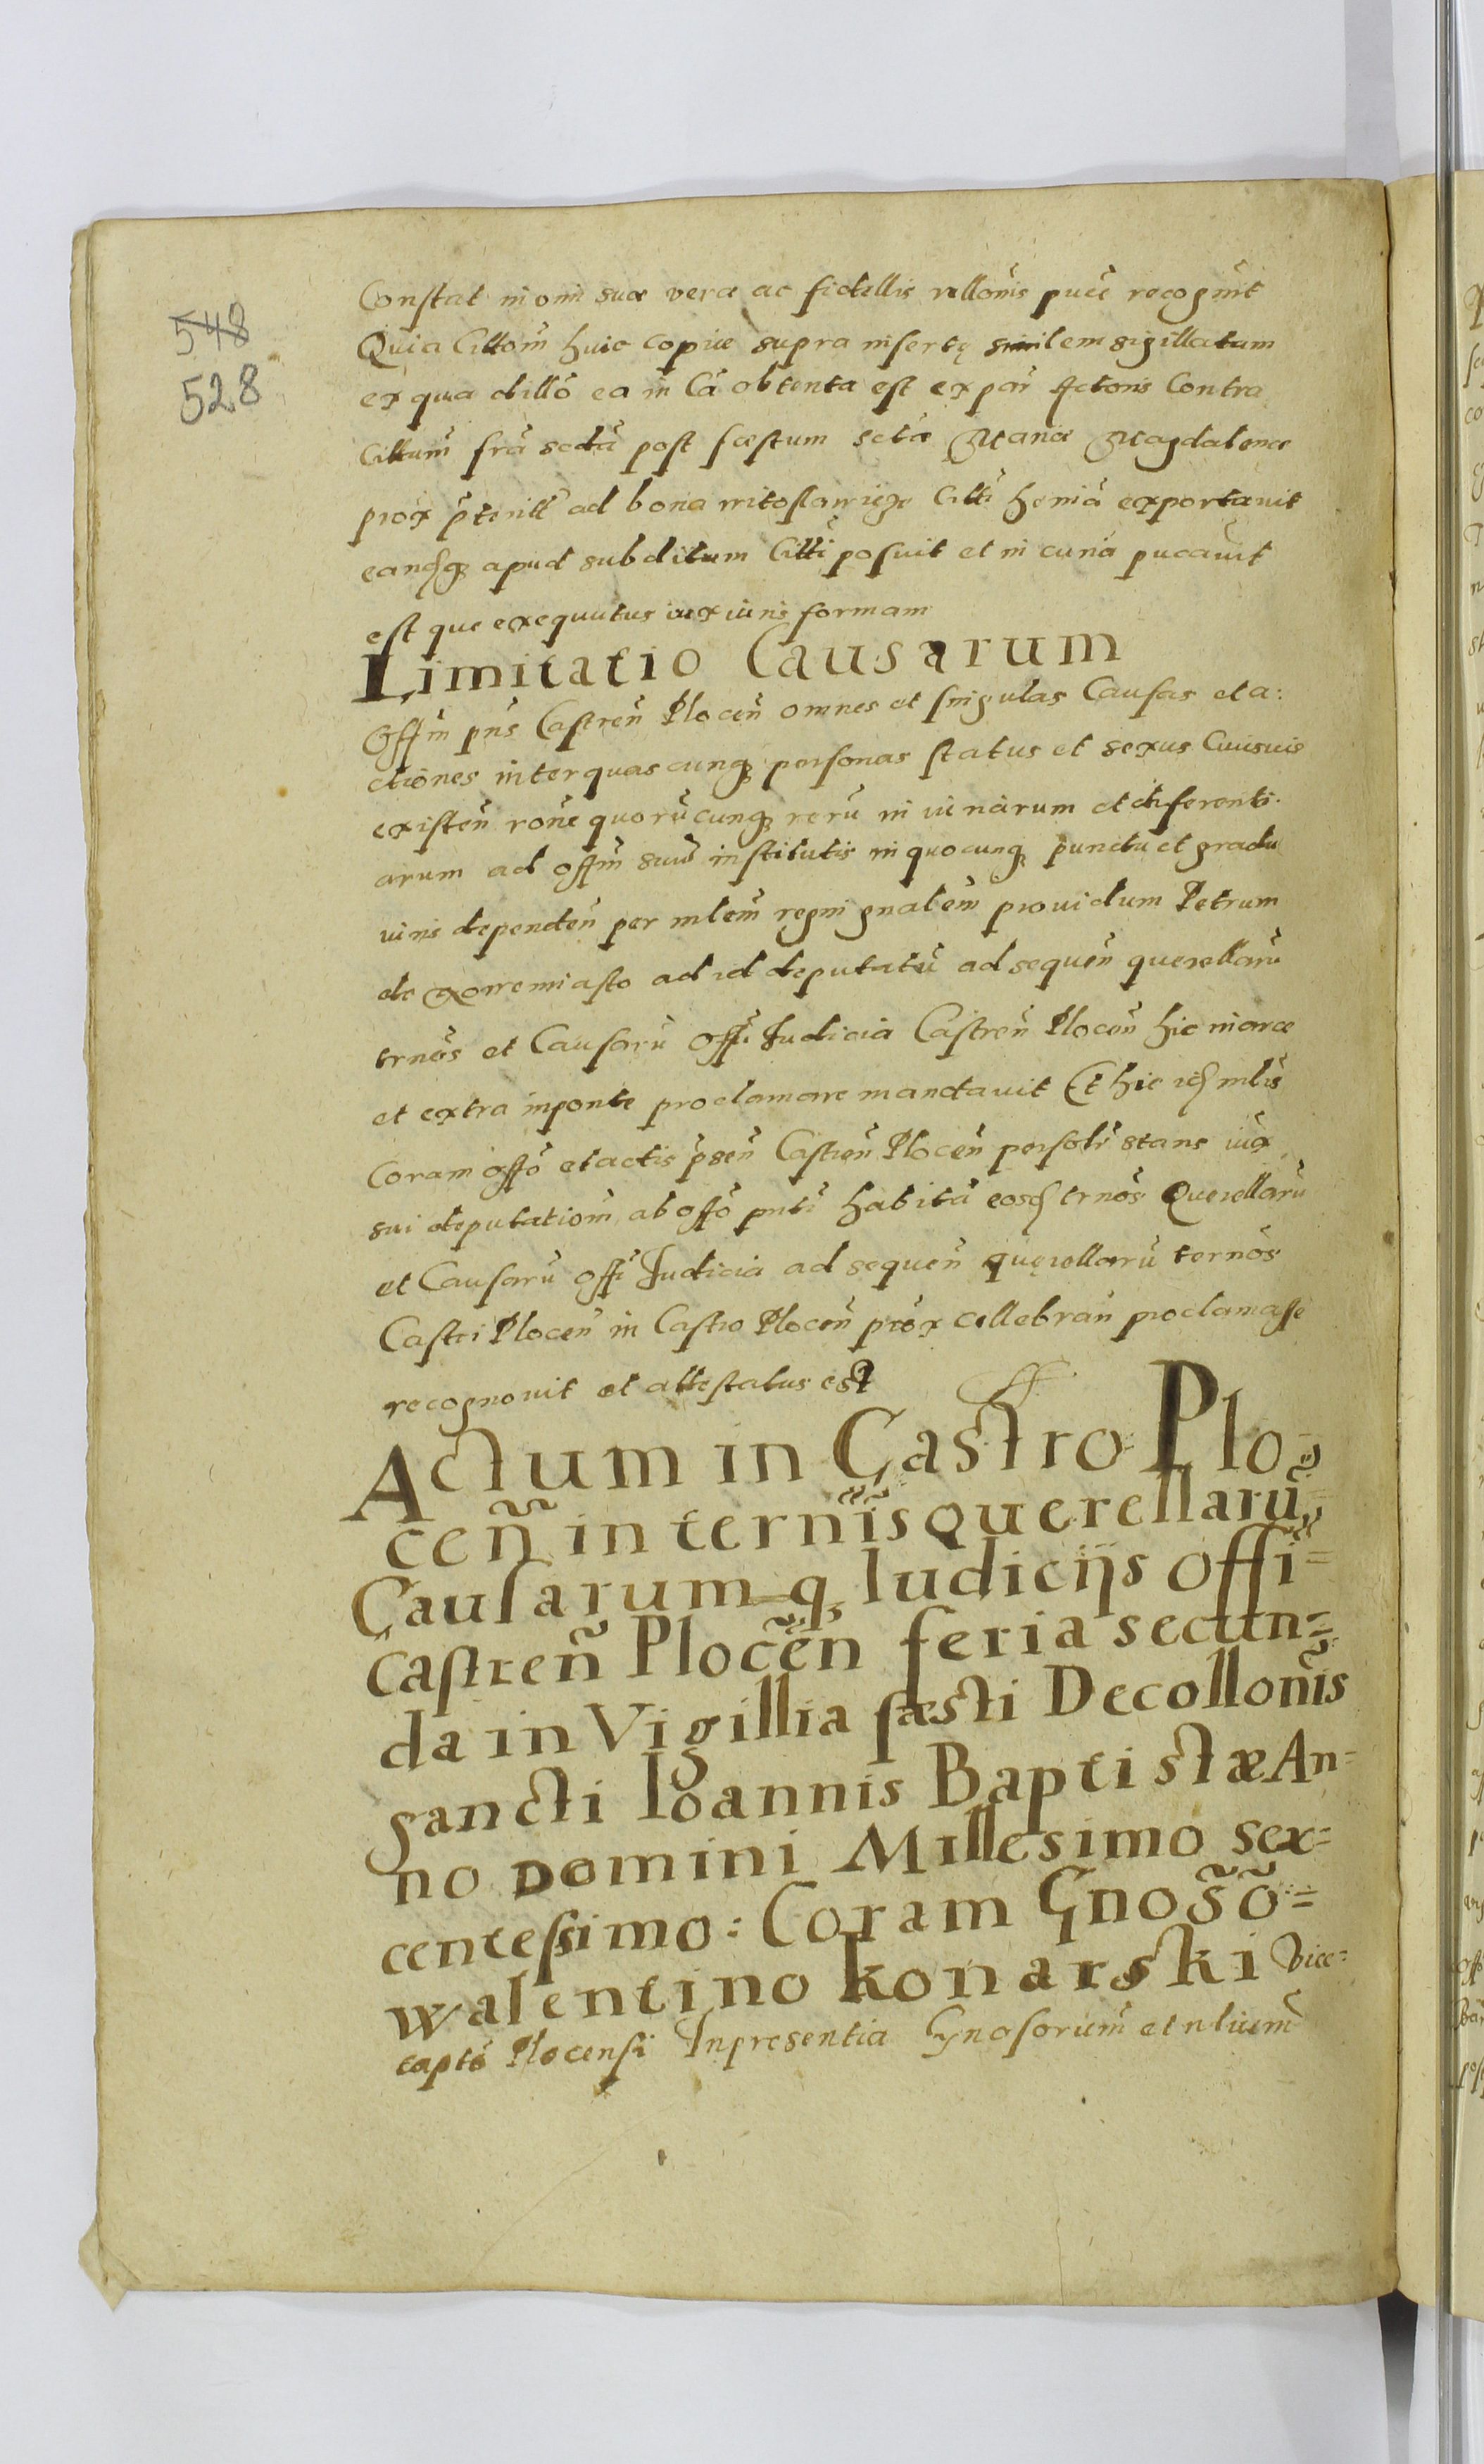 548
528
Constat in oim suæ veræ ac fidellis rellonis puce recognit
Quia Cittom huic copiæ supra insertę similem sigillatam
ex qua dillo ea in Ca obtenta est ex par Actoris Contra
Cittum fra scda post fæstum sctæ Mariæ Magdalenæ
prox pterit ad bona Citti exportavit
eandq apud subditum Citti posuit et in curia pucavit
est que exequutus iux iuris formam
Limitatio Causarum
Offm pns Castren Plocen omnes et singulas Causas et a:
ctiones inter quascunq personas status et sexus Cuiusvis
existen rone quorucunq reru in iuriarum et diferenti
arum ad offm suu institutis in quocunq punctu et gradu
iuris dependen per mlem regni gnalem providum Petrum
de ad id deputatu ad sequen querellaru
trnos et Causaru offi Judicia Castren Plocen hic in arce
et extra in ponte proclamare mandavit Et hic id mlis
Coram offo et actis psen Castren Plocen persolr stans iux
sui deputationm ab offo pnti habita eosd trnos Querellaru
et Causaru offi Judicia ad sequen quęrellaru ternos
Castri Plocen in Castro Plocen prox cellebran proclamasse
recognovit et attestatus est
Actum in Castro Plo
cen in ternis querellaru,
Causarum q Iudicijs offi=
castren Plocen feria secun=
da in Vigillia fæsti Decollonis
sancti Ioannis Baptistæ An=
no Domini Millesimo sex=
centessimo: Coram Gnoso=
walentino konarski vice=
capto Plocensi In presentia Gnosorum et nlium